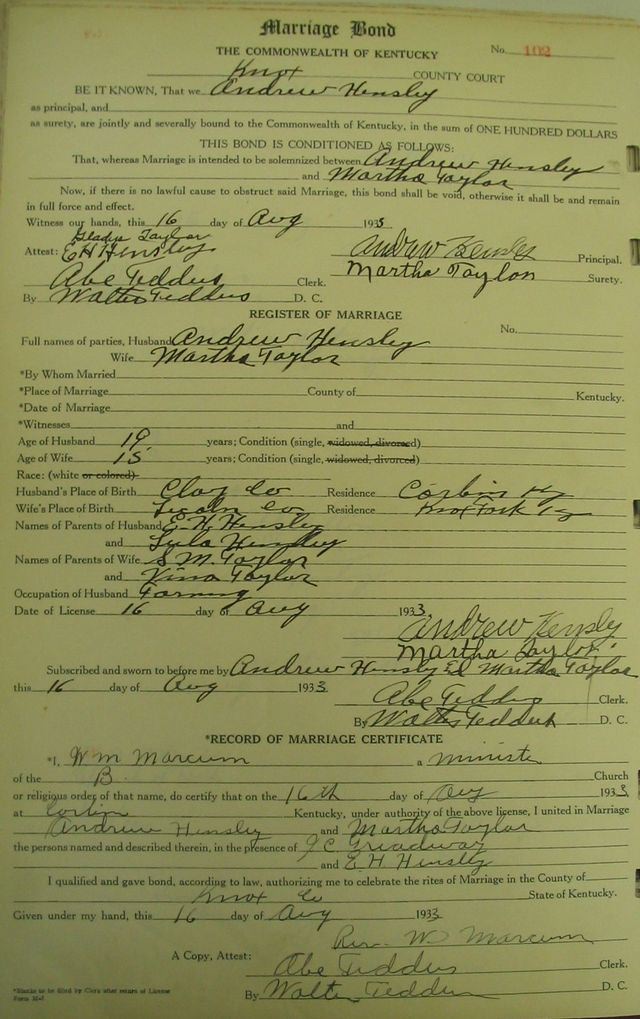 Marriage Bond
THE COMMONWEALTH OF KENTUCKY No. 102
Knox COUNTY COURT
BE IT KNOWN, That we Andrew Hensley
as principal, and
as surety, are jointly and severally bound to the Commonwealth of Kentucky, in the sum of ONE HUNDRED DOLLARS
THIS BOND IS CONDITIONED AS FOLLOWS:
That, whereas Marriage is intended to be solemnized between Andrew Hensley
and Martha Taylor
Now, if there is no lawful cause to obstruct said Marriage, this bond shall be void, otherwise it shall be and remain
in full force and effect.
Witness our hands, this 16 day of Aug 1933
Gladys Taylor
Attest: E H Hensley Andrew Hensley Principal.
Abe Teddus Clerk. Martha Taylor Surety.
By Walter Teddus D. C.
REGISTER OF MARRIAGE
No.
Full names of parties, Husband Andrew Hensley
Wife Martha Taylor
*By Whom Married
*Place of Marriage County of Kentucky.
*Date of Marriage
*Witnesses and
Age of Husband 19 years; Condition (single, widowed, divorced)
Age of Wife 15 years; Condition (single, widowed, divorced)
Race: (white or colored)
Husband's Place of Birth Clay Co Residence Corbin Ky
Wife's Place of Birth Co Residence Knox Fork Ky
Names of Parents of Husband E. H. Hensley
and Lula Hensley
Names of Parents of Wife S. M. Taylor
and Vina Taylor
Occupation of Husband Farming
Date of License 16 day of Aug 1933
Andrew Hensley
Martha Taylor
Subscribed and sworn to before me by Andrew Hensley Martha Taylor
this 16 day of Aug 1933
Abe Teddus Clerk.
By Walter Teddus D. C.
*RECORD OF MARRIAGE CERTIFICATE
*I, Wm Marcum a minister
of the B. Church
or religious order of that name, do certify that on the 16th day of Aug 1933
at Corbin Kentucky, under authority of the above license, I united in Marriage
Andrew Hensley and Martha Taylor
the persons named and described therein, in the presence of J C Greadway
and E. H Hensley
I qualified and gave bond, according to law, authorizing me to celebrate the rites of Marriage in the County of
Knox Co State of Kentucky.
Given under my hand, this 16 day of Aug 1933
Rev. W Marcum
A Copy, Attest: Abe Teddus Clerk.
By Walter Teddus D. C.
*Blanks to be filed by Clerk after return of License